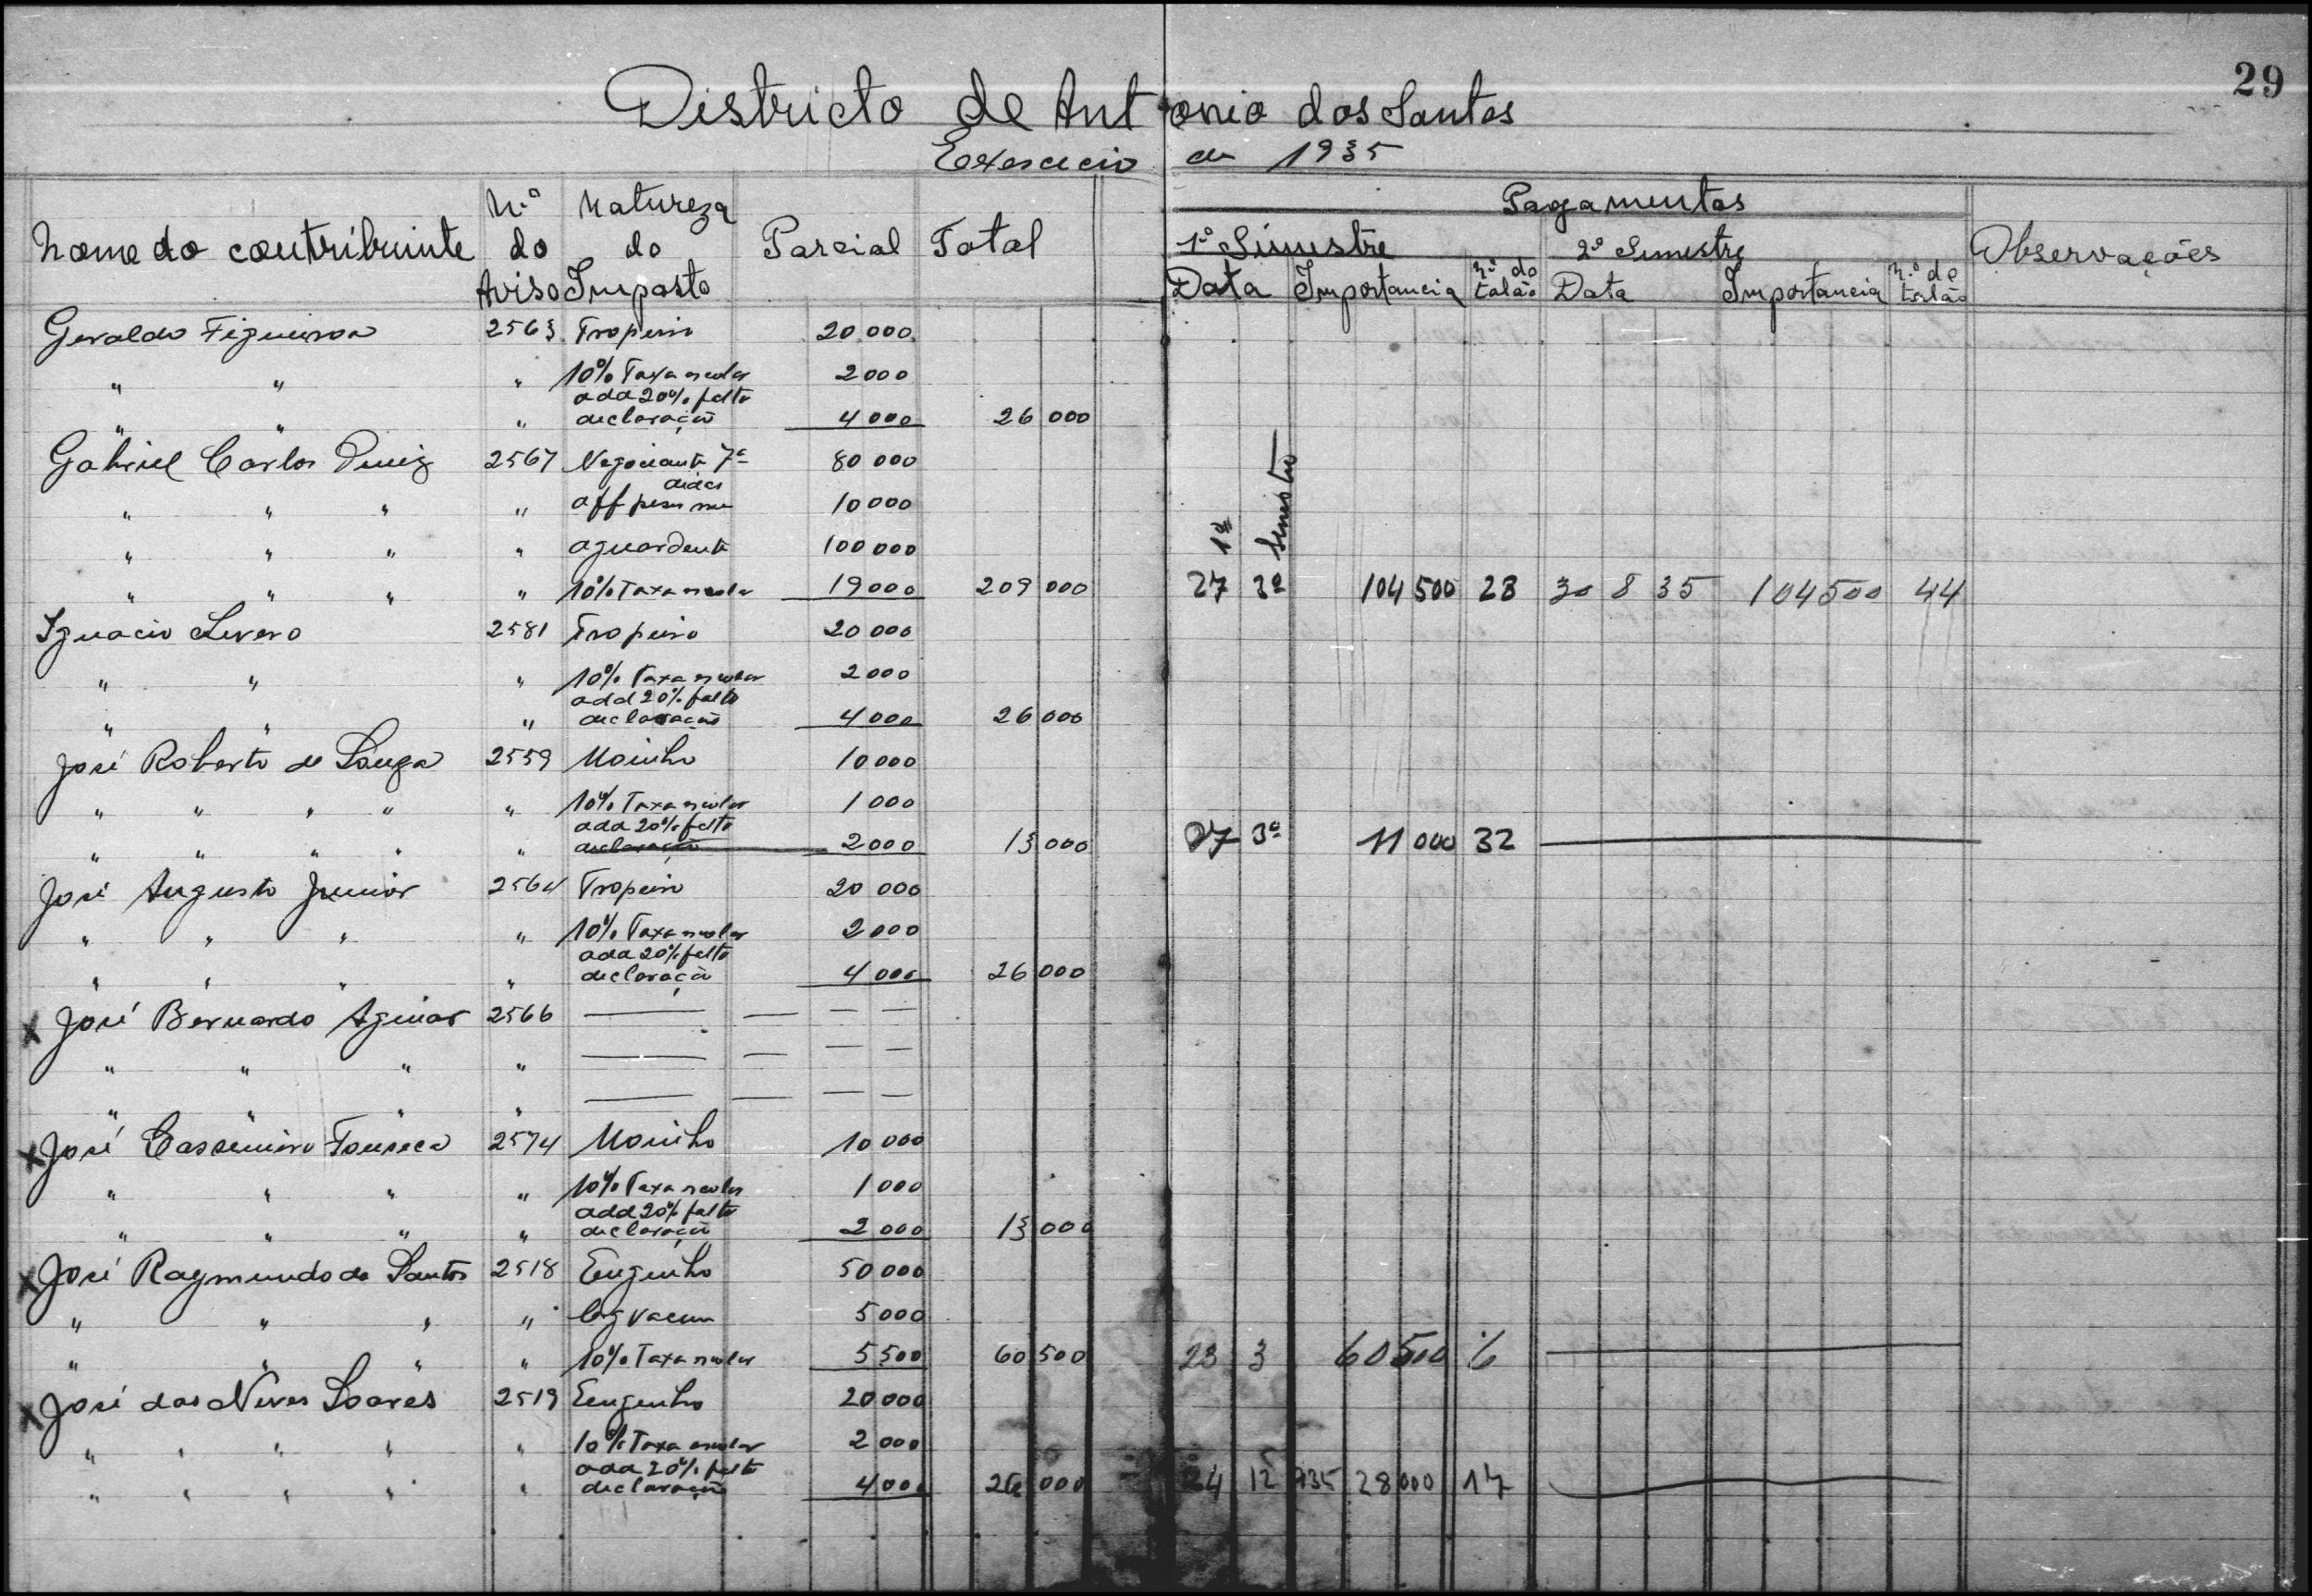 29
Districto de Antonio dos Santos
Exercicio de 1935
Nome do contribuinte N.º do Aviso Natureza do Imposto Parcial Total Pagamentos Observações
1º Simestre 2º Simestre
Data Importancia n.º do talão Data Importancia n.º do talão
Geraldo Figueiroa 2563 Tropeiro 20 000
" " " 10% Taxa escolar 2 000
" " " add 20% falta declaração 4 000 26 000
Gabriel Carlos Diniz 2567 Negociante 7ª 80 000
" " " " aff pesos me didas 10 000
" " " " aguardente 100 000 1º Semestre
" " " " 10% Taxa escolar 19 000 209 000 27 3º 104 500 28 30 8 35 104 500 44
Ignacio Severo 2581 Tropeiro 20 000
" " " 10% Taxa escolar 2 000
" " " add 20% falta declaração 4 000 26 000
José Roberto de Souza 2559 Moinho 10 000
" " " " " 10% Taxa escolar 1 000
" " " " " add 20% falta declaração 2 000 13 000 27 3º 11 000 32
José Augusto Junior 2564 Tropeiro 20 000
" " " " 10% Taxa escolar 2 000
" " " " add 20% falta declaração 4 000 26 000
x José Bernardo Aguiar 2566 — — — —
" " " " — — — —
" " " " — — — —
x José Cassemiro Fonseca 2574 Moinho 10 000
" " " " 10% Taxa escolar 1 000
" " " " add 20% falta declaração 2 000 13 000
x José Raymundo do Santos 2518 Engenho 50 000
" " " " vaccum 5 000
" " " " 10% Taxa escolar 5 500 60 500 23 3 60 500 6
x José das Neves Soares 2519 Engenho 20 000
" " " " " 10% Taxa escolar 2 000
" " " " " add 20% falta declaração 4 000 26 000 24 12 935 28 000 17